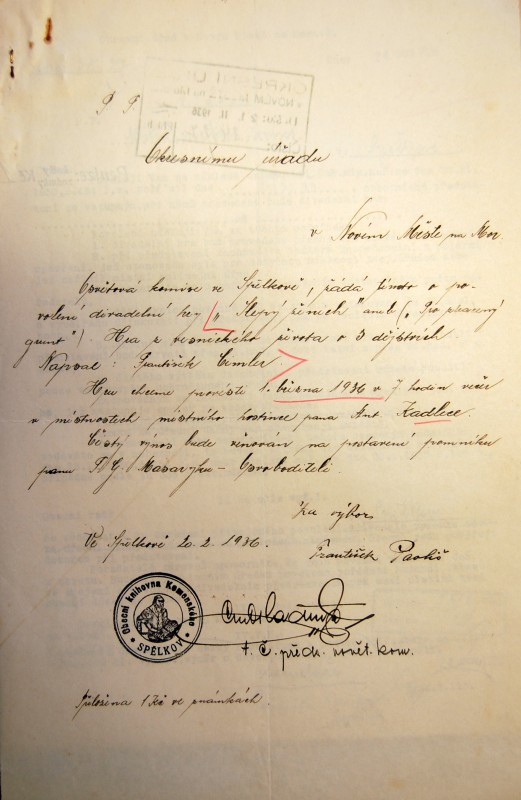 P. T.
Okresnímu úřadu
v Novém Městě na Mor.
Osvětová komise ve Spělkově, žádá tímto o po-
volení divadelní hry „Slepý ženich" aneb („Pro ztracený
grunt"). Hra z vesnického života o 3 dějstvích.
Napsal: František Cimler.
Hru chceme provésti 1. března 1936 v 7 hodin večer
v místnostech místního hostince pana Ant. Kadlece.
Čistý výnos bude věnován na postavení pomníku
panu T. G. Masaryku – Osvoboditeli.
Za výbor
Ve Spělkově 20. 2. 1936.
František
Obecní knihovna Komenského
SPĚLKOV
t. č. předs. osvět. kom.
Přiložena 1 Kč ve známkách.